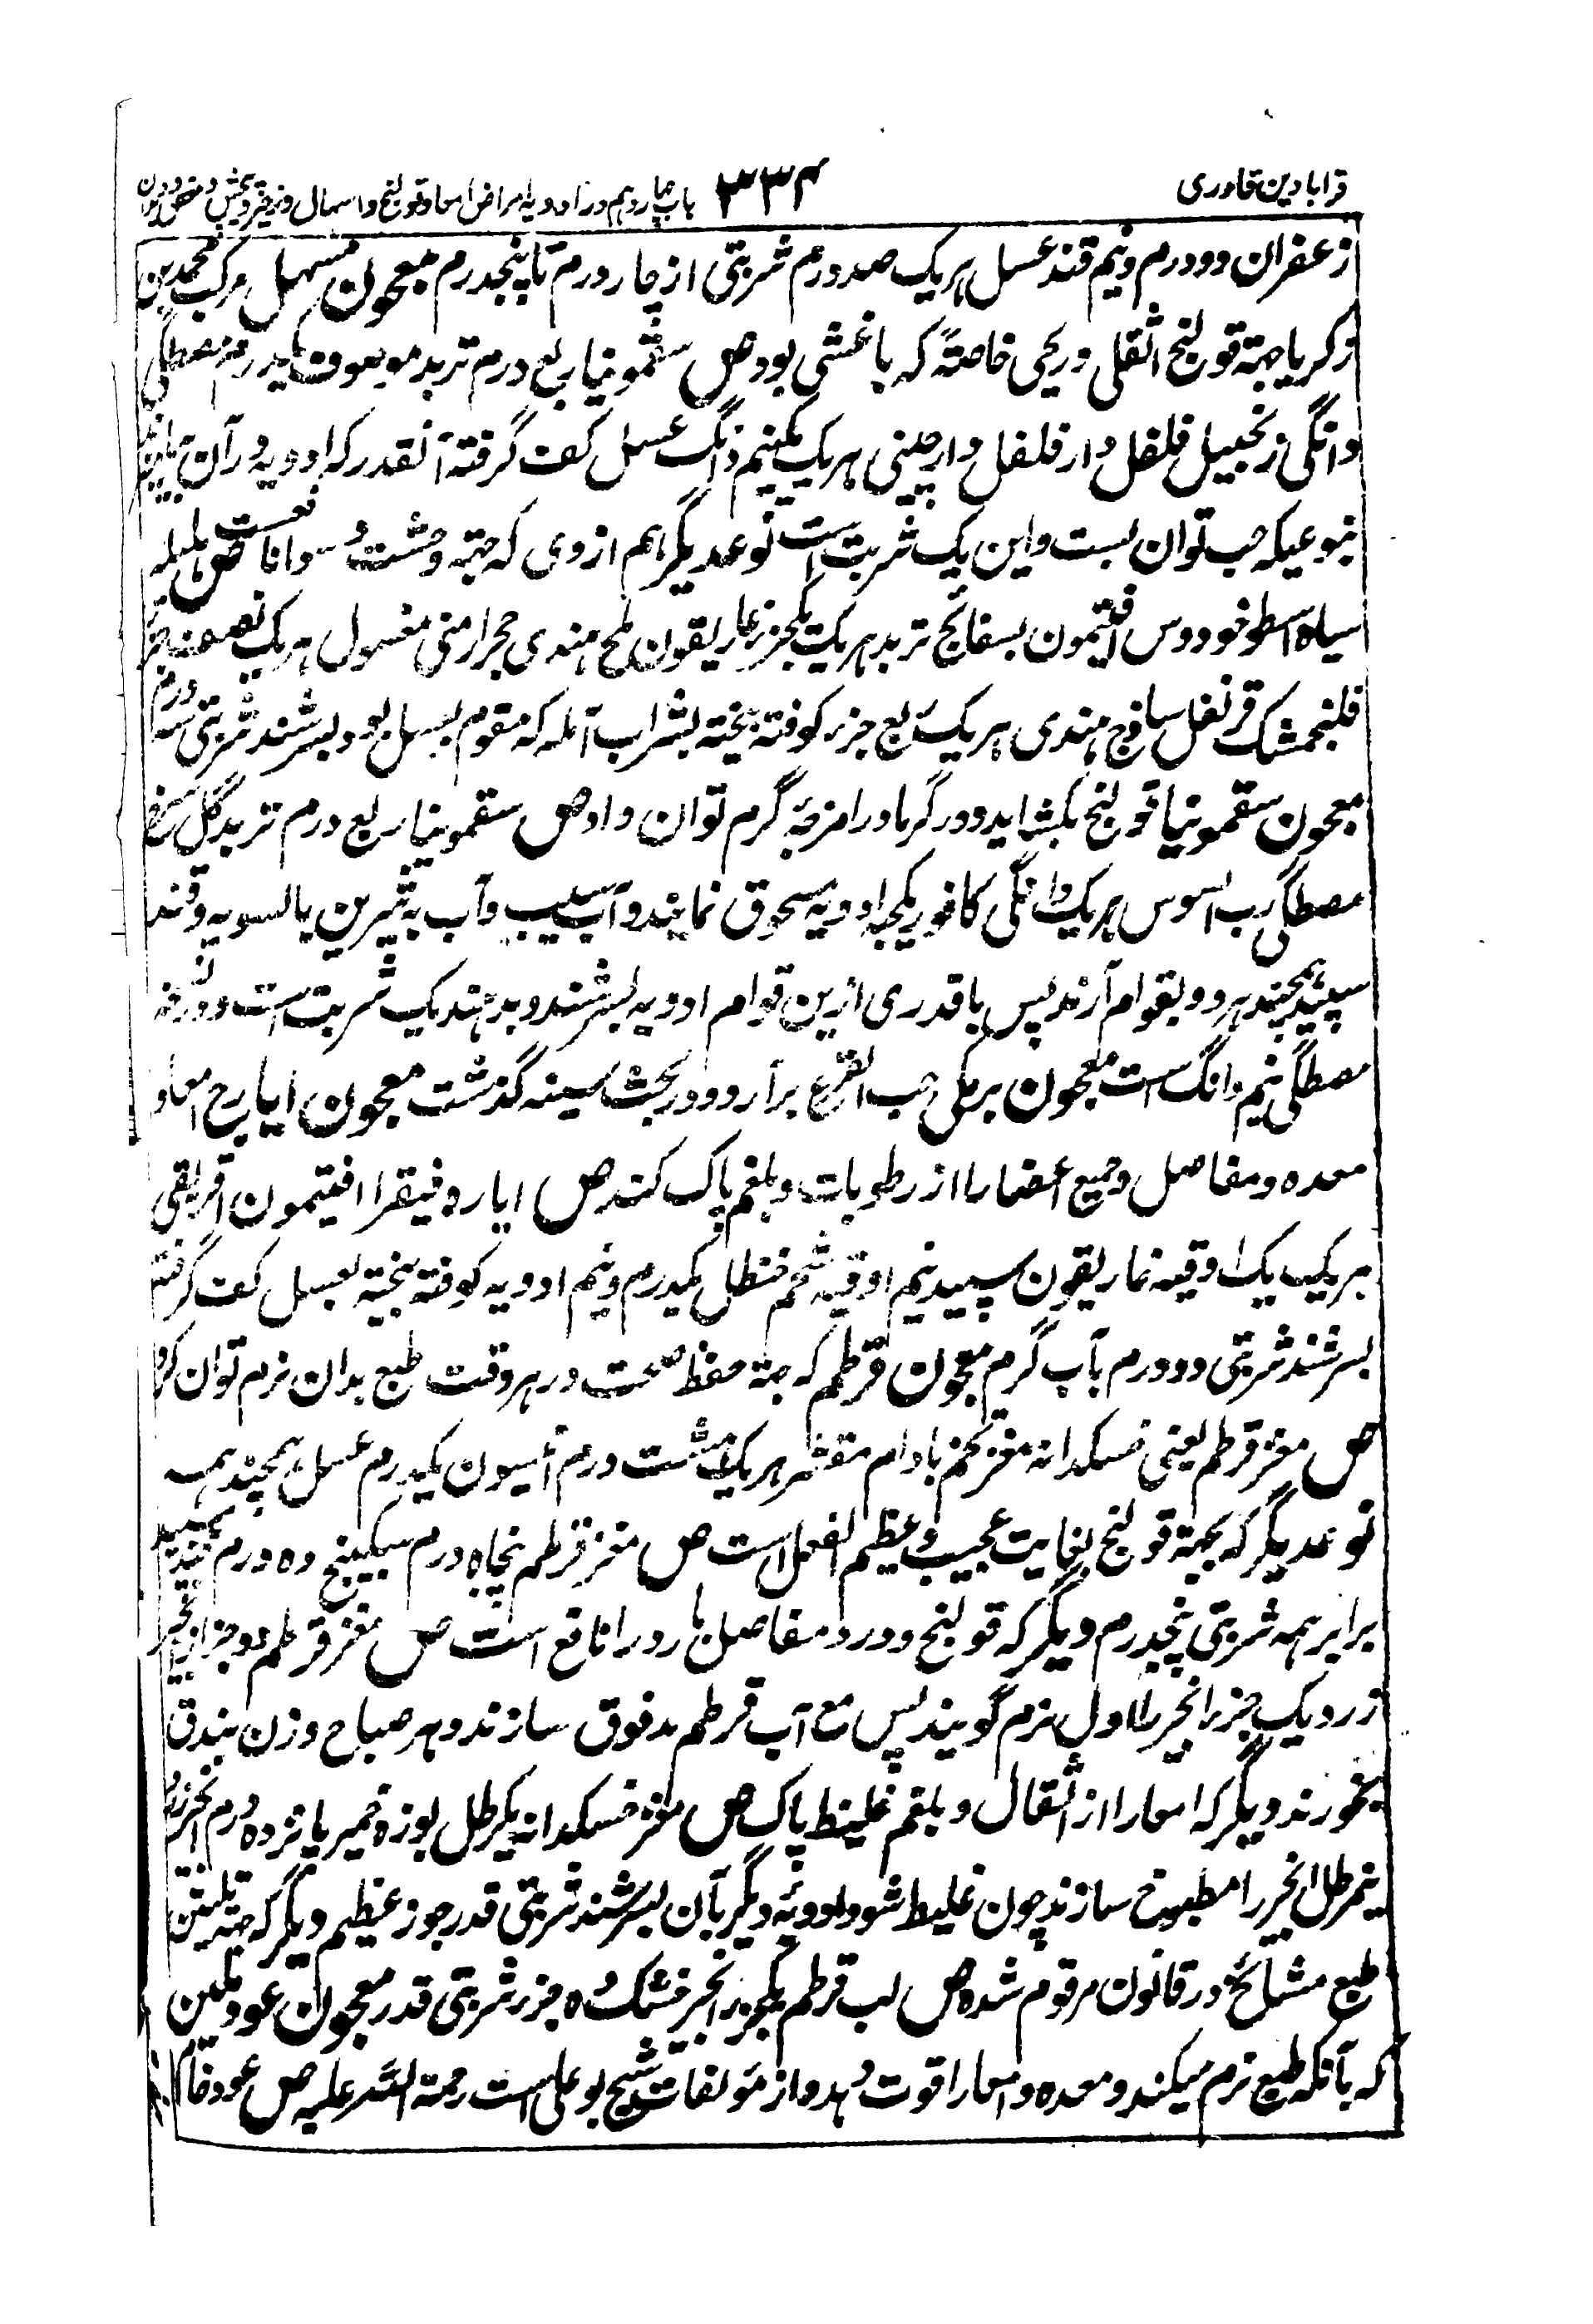 قرابادین قادری
۳۳۴
باب چهاردهم در ادویه امراض امعا و قولنج و اسهال و زحیر و پیچش و
زعفران دو درم و نیم قند عسل هر یک صد درم شربتی از چار درم تا پنجدرم معجون مسهل مرکب محمد بن
زکریا جهة قولنج ثقلی و ریحی خاصةً که با غشی بود ص سقمونیا ربع درم تربد موصوف یکدرم مصطگی
دانگی زنجبیل فلفل دارفلفل دارچینی هر یک یکنیم دانگ عسل کف گرفته آنقدر که ادویه در آن
بنوعیکه حب توان بست و این یک شربت است نوعدیگر هم از وی که جهة وحشت و سودا نافعست ص هلیله
سیاه اسطوخودوس افتیمون بسفائج تربد هر یک یکجزر غاریقون ملح هندی حجر ارمنی مغسول هر یک نصف جزر
فلنجمشک قرنفل ساذج هندی هر یک ربع جزر کوفته بیخته بشراب آمله که مقوم بعسل بود بسرشند شربتی سه درم
معجون سقمونیا قولنج بکشاید و در گرما در امزجۀ گرم توان داد ص سقمونیا ربع درم تربد گل سرخ
مصطگی رب السوس هر یک دانگی کافور یکحبه ادویه مسحوق نمایند و آب سیب و آب به شیرین بالسویه و قند
سپید همچند هر دو بقوام آرند پس با قدری ازین قوام ادویه بسرشند و بدهند یک شربت است و در نسخه
مصطگی نیم دانگ است معجون برمکی حب القرع برآرد و در بحث سینه گذشت معجون ایارج امعا و
معده و مفاصل و جمیع اعضا را از رطوبات و بلغم پاک کند ص ایاره فیقرا افتیمون اقریطی
هر یک یک اوقیه غاریقون سپید نیم اوقیه شحم حنظل یکدرم و نیم ادویه کوفته بیخته بعسل کف گرفته
بسرشند شربتی دو درم بآب گرم معجون قرطم که جهة حفظ صحت در هر وقت طبع بدان نرم توان کرد
ص مغز قرطم یعنی خسکدانه مغز تخم بادام مقشر هر یک هشت درم انیسون یکدرم عسل همچند همه
نوعدیگر که بجهة قولنج بغایت عجیب و عظیم الفعل است ص مغز قرطم پنجاه درم سکبینج ده درم
برابر همه شربتی پنجدرم دیگر که قولنج و درد مفاصل بارد را نافع است ص مغز قرطم دو جزر انجیر
زرد یک جزر انجیر را اول نرم کوبند پس مع آب قرطم مدقوق سازند و هر صباح وزن بندق
بخورند دیگر که امعا را از اثقال و بلغم غلیظ پاک ص مغز خسکدانه یکرطل بوزه خمیر پانزده درم انجیر زرد
نیمرطل انجیر را مطبوخ سازند چون غلیظ شود ادویۀ دیگر بآن بسرشند شربتی قدر جوز عظیم دیگر که جهة تلیین
طبع مشائخ در قانون مرقوم شده ص لب قرطم یکجزر انجیر خشک ده جزر شربتی قدر معجون عود ملین
که بآنکه طبع نرم میکند و معده و امعا را قوت دهد و از مؤلفات شیخ بوعلی است رحمة الله علیه ص عود خام